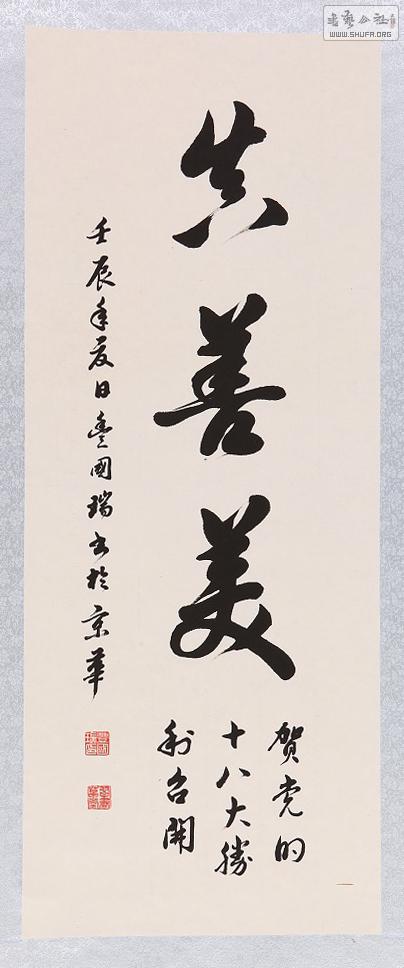 書藝公社
WWW.SHUFA.ORG
真善美
賀党的
十八大勝
利召開
壬辰年夏日豊國瑞書於京華